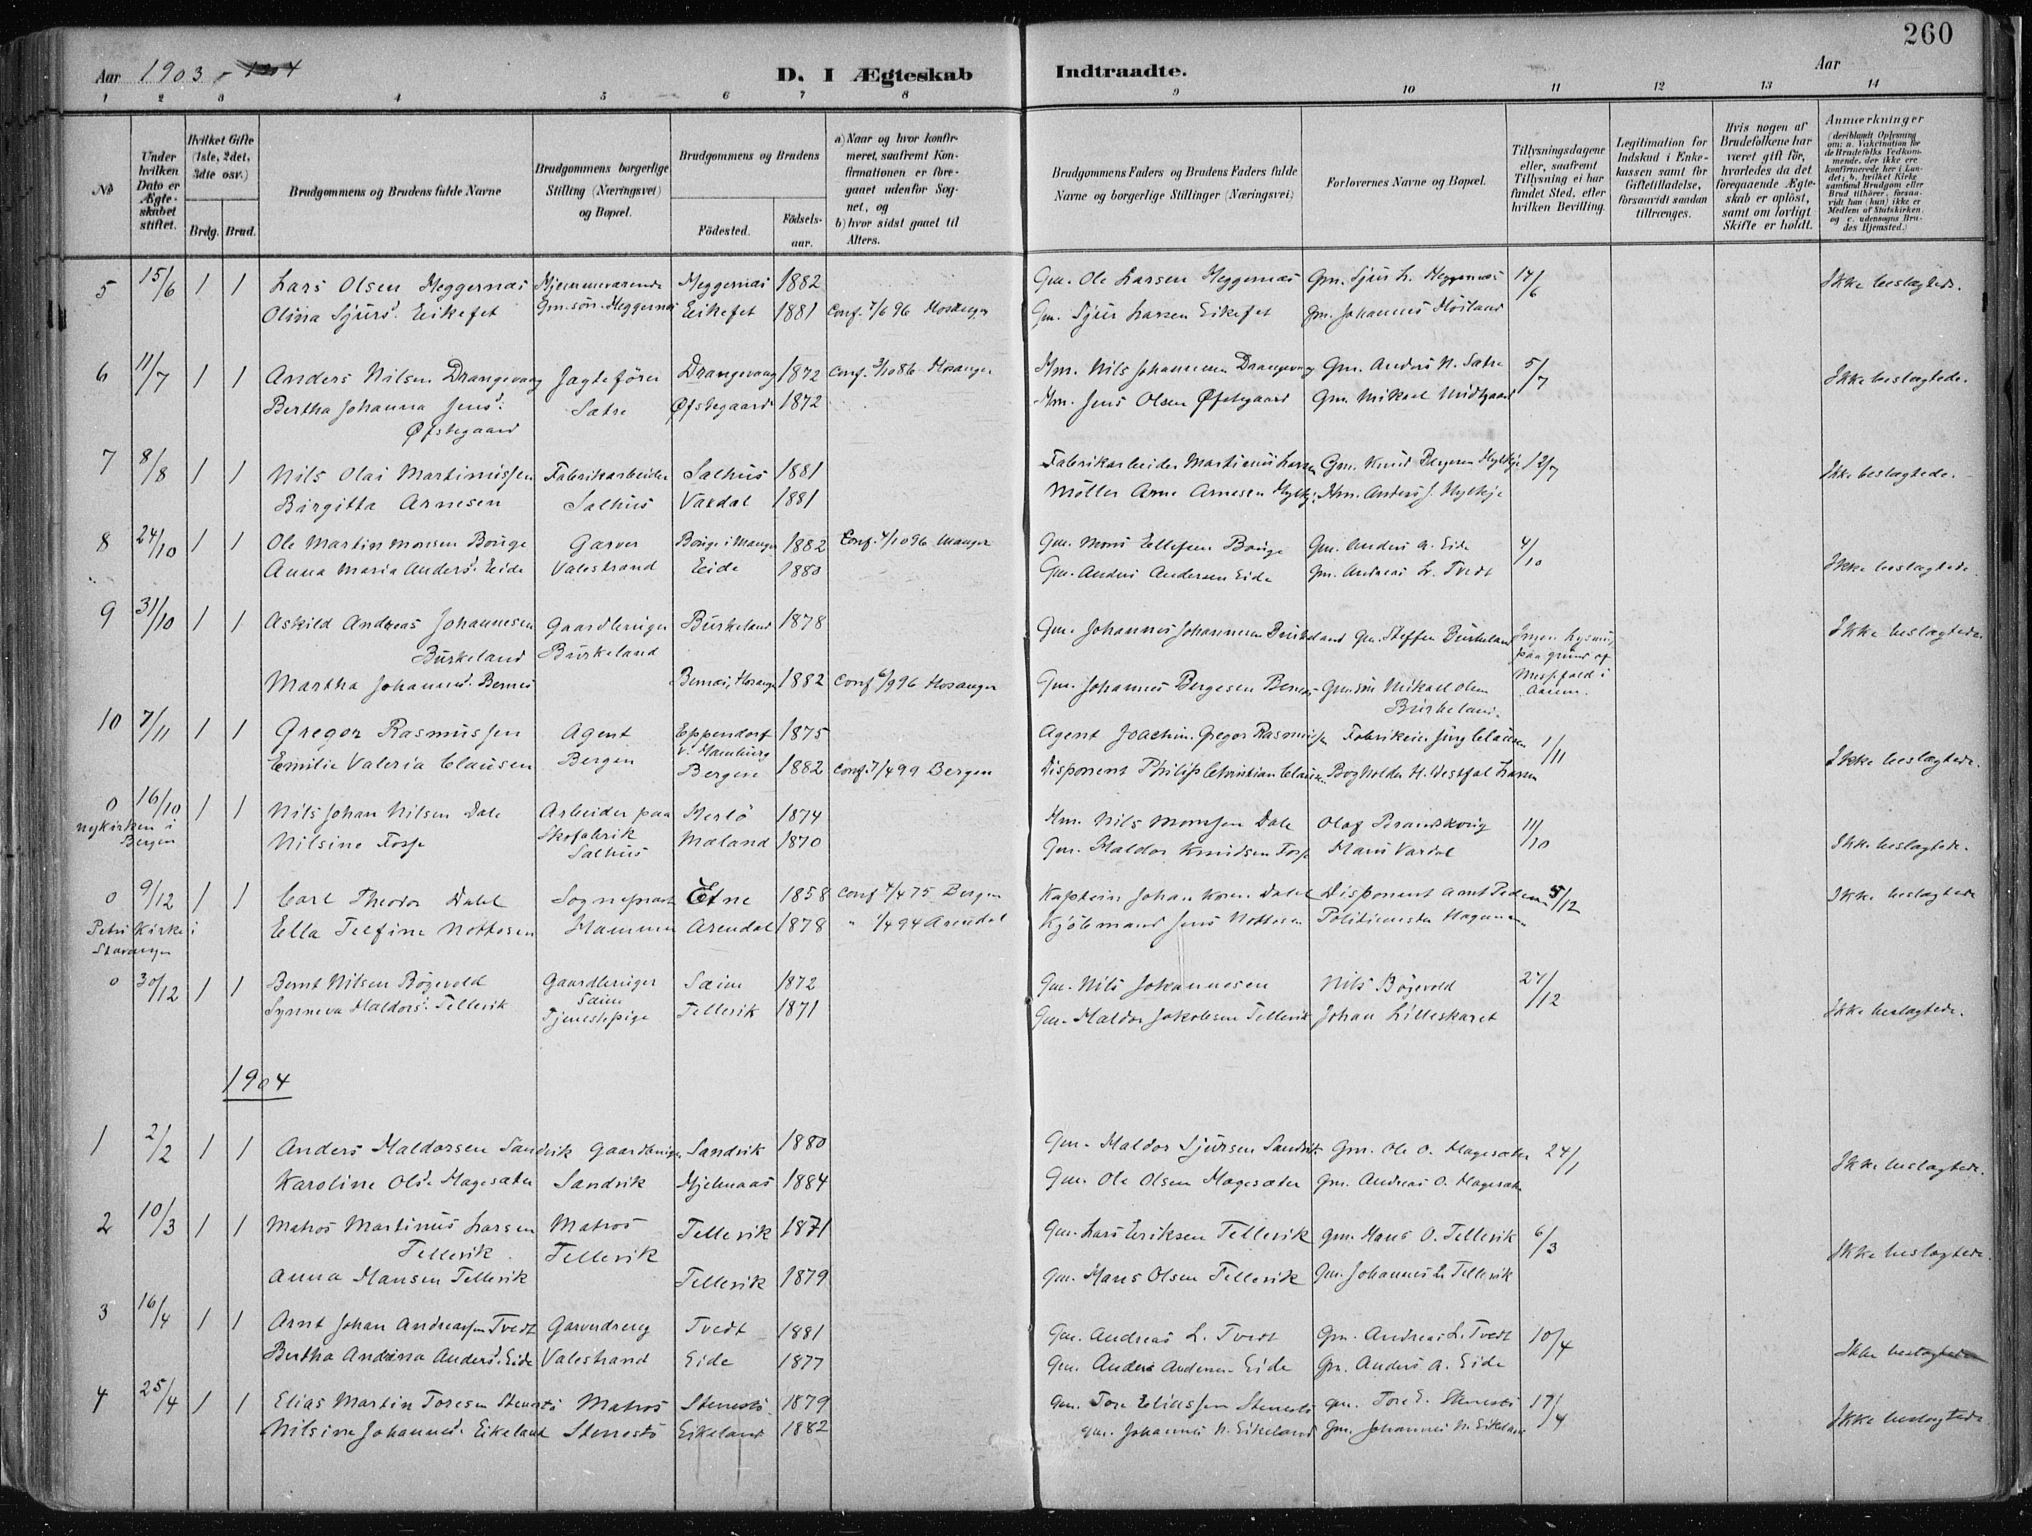 260
Aar 1903 - 1904
D. I Ægteskab Indtraadte.
Aar
1 2 3 4 5 6 7 8 9 10 11 12 13 14
No
Under hvilken Dato er Ægteskabet stiftet.
Hvilket Gifte (1ste, 2det, 3dte osv.)
Brdg. Brud.
Brudgommens og Brudens fulde Navne
Brudgommens borgerlige Stilling (Næringsvei) og Bopæl.
Brudgommens og Brudens
Födested. Födselsaar.
a) Naar og hvor konfirmeret, saafremt Konfirmationen er foregaaet udenfor Sognet, og
b) hvor sidst gaaet til Alters.
Brudgommens Faders og Brudens Faders fulde Navne og borgerlige Stillinger (Næringsvei)
Forlovernes Navne og Bopæl.
Tillysningsdagene eller, saafremt Tillysning ei har fundet Sted, efter hvilken Bevilling.
Legitimation for Indskud i Enkekassen samt for Giftetilladelse, forsaavidt saadan tiltrænges.
Hvis nogen af Brudefolkene har været gift för, hvorledes da det foregaaende Ægteskab er oplöst, samt om lovligt Skifte er holdt.
Anmærkninger (deriblandt Oplysning om: a. Vakcination for de Brudefolks Vedkommende, der ikke ere konfirmerede her i Landet; b. hvilket Kirkesamfund Brudgom eller Brud tilhörer, forsaavidt han (hun) ikke er Medlem af Statskirken, og c. udensogns Brudes Hjemsted.)
5 15/6 1 1 Lars Olsen Heggernæs Hjemmeværende Heggernæs 1882 Gm. Ole Larsen Heggernæs Gm. Sjur L. Heggernæs 14/6 Ikke beslægtede.
Olina Sjurs. Eikefet Gm. søn. Heggernæs Eikefet 1881 Conf. 7/6 96 Hosanger Gm. Sjur Larsen Eikefet Gm. Johannes Höiland
6 11/7 1 1 Anders Nilsen Drangevaag Jagtefører Drangevaag 1872 Conf. 3/10 86 Hosanger Hm. Nils Johannessen Drangevaag Gm. Anders N. Sætre 5/7 Ikke beslægtede.
Bertha Johanna Jens. Sætre Øfstegaard 1872 Hm. Jens Olsen Øfstegaard Gm. Mikael Midtgaard
Øfstegaard
7 8/8 1 1 Nils Olai Martinussen Fabrikarbeider Salhus 1881 Fabrikarbeider Martinus Larsen Gm. Knud Hylkje 12/7 Ikke beslægtede.
Birgitta Arnesen Salhus Vaxdal 1881 Möller Arne Arnesen Hylkje Hm. Anders J. Hylkje
8 24/10 1 1 Ole Martin Monsen Bouge Garver Bouge i Manger 1882 Conf. 4/10 96 Manger Gm. Mons Ellefsen Bouge Gm. Anders A. Eide 4/10
Anna Maria Anders. Eide Valestrand Eide 1880 Gm. Anders Andersen Eide Gm. Andreas L. Tvedt Ikke beslægtede
9 31/10 1 1 Askild Andreas Johannesen Gaardbruger Burkeland 1878 Gm. Johannes Johannessen Burkeland Gm. Steffen Burkeland Ingen Lysning Ikke beslægtede
Burkeland Burkeland paa grund af
Martha Johannes. Bernes Bernæs, Hosanger 1882 Conf 6/9 96 Hosanger Gm. Johannes Børgesen Bernes Gm. søn Mikael Olsen Messefald i
Burkeland.
10 7/11 1 1 Gregor Rasmussen Agent Eppendorf 1875 Agent Joachim Gregor Rasmussen Fabrikeier Clausen 1/11
v. Hamburg
Emilie Valeria Clausen Bergen Bergen 1882 Conf. 7/4 99 Bergen Disponent Philip Christian Clausen Bogholder H. Westfal Larsen Ikke beslægtede.
0 16/10 1 1 Nils Johan Nilsen Dale Arbeider paa Herlö 1874 Hm. Nils Monssen Dale Olaf 11/10
Nykirken i Bergen Nilsine Fosse Skofabrik Mæland 1870 Gm. Haldor Knudsen Fosse Hans Vaxdal Ikke beslægtede.
Salhus
0 9/12 1 1 Carl Theodor Dahl Sogneprest Etne 1858 Conf 4/4 75 Bergen Kaptein Johan Koren Dahl Disponent 5/12 Ikke beslægtede
Petri Kirke i Stavanger Ella Telfine Nottesen Hammer Arendal 1878 " 1/4 94 Arendal Kjöbmand Jens Nottesen Politimester Hagemann
0 30/12 1 1 Bernt Nilsen Bögevold Gaardbruger Sæim 1872 Gm. Nils Johannesen Nils Bögevold 27/12
Sæim
Synneva Haldors. Tellevik Tjenestepige Tellevik 1871 Gm. Haldor Jakobsen Tellevik Johan Lilleskaret Ikke beslægtede.
1904
1 2/2 1 1 Anders Haldorsen Sandvik Gaardbruger Sandvik 1880 Gm. Haldor Sjursen Sandvik Gm. Ole O. Hagesæter 24/1
Karoline Ols. Hagesæter Sandvik Hjelmaas 1884 Gm. Ole Olsen Hagesæter Gm. Andreas O. Hagesæter Ikke beslægtede.
2 10/3 1 1 Matros Martinus Larsen Matros Tellevik 1871 Gm. Lars Eriksen Tellevik Gm. Hans O. Tellevik 6/3
Tellevik Tellevik Ikke beslægtede.
Anna Hansen Tellevik Tellevik 1879 Gm. Hans Olsen Tellevik Gm. Johannes L. Tellevik
3 16/4 1 1 Arnt Johan Andreassen Tvedt Garverdreng Tvedt 1881 Gm. Andreas L. Tvedt Gm. Andreas L. Tvedt 10/4
Bertha Andrina Anders. Eide Valestrand Eide 1877 Gm. Anders Andersen Eide Gm. Anders A. Eide Ikke beslægtede
4 25/4 1 1 Elias Martin Toresen Stenestö Matros Stenestö 1879 Gm. Tore Eliassen Stenestö Gm. Tore E. Stenestö 17/4
Nilsine Johannes. Eikeland Stenestö Eikeland 1882 Gm. Johannes N. Eikeland Gm. Johannes N. Eikeland Ikke beslægtede.